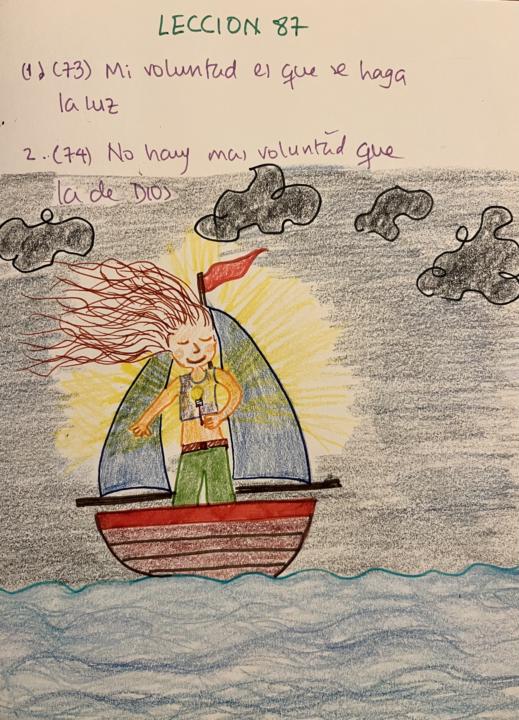 LECCION 87
(1) (73) Mi voluntad es que se haga
la luz
2.. (74) No hay mas voluntad que
la de DIOS